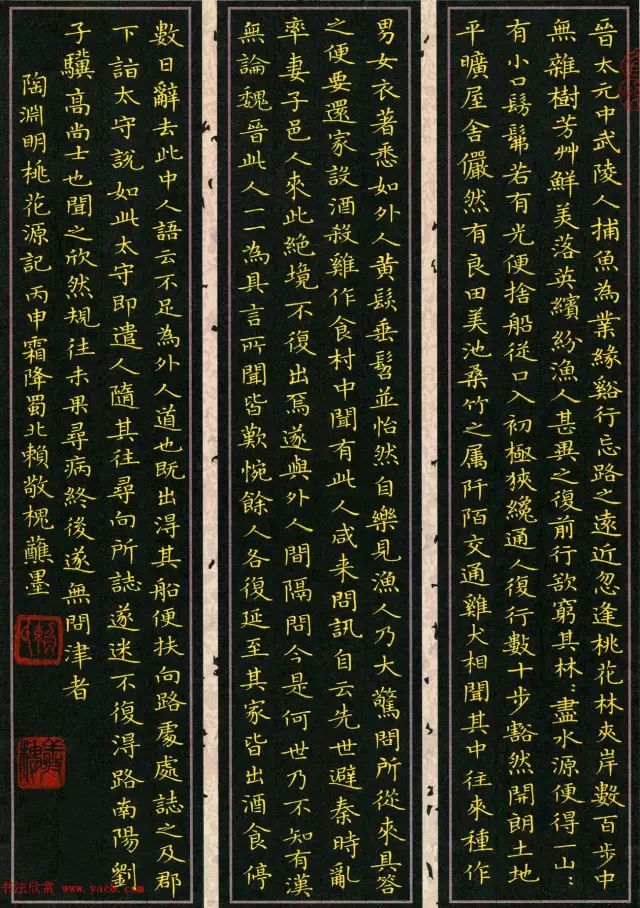 晉太元中武陵人捕魚為業緣谿行忘路之遠近忽逢桃花林夾岸數百步中
無雜樹芳艸鮮美落英繽紛漁人甚異之復前行欲窮其林〻盡水源便得一山〻
有小口髣髴若有光便捨船從口入初極狹纔通人復行數十步豁然開朗土地
平曠屋舍儼然有良田美池桑竹之属阡陌交通雞犬相聞其中往來種作
男女衣著悉如外人黄髮垂髫並怡然自樂見漁人乃大驚問所從來具答
之便要還家設酒殺雞作食村中聞有此人咸来問訊自云先世避秦時亂
率妻子邑人來此絶境不復出焉遂與外人間隔問今是何世乃不知有漢
無論魏晉此人一一為具言所聞皆歎惋餘人各復延至其家皆出酒食停
數日辭去此中人語云不足為外人道也既出得其船便扶向路處處誌之及郡
下詣太守說如此太守即遣人隨其往尋向所誌遂迷不復得路南陽劉
子驥高尚士也聞之欣然規往未果尋病終後遂無問津者
陶淵明桃花源記丙申霜降蜀北賴敬槐蘸墨
书法欣赏 www.yac8.com